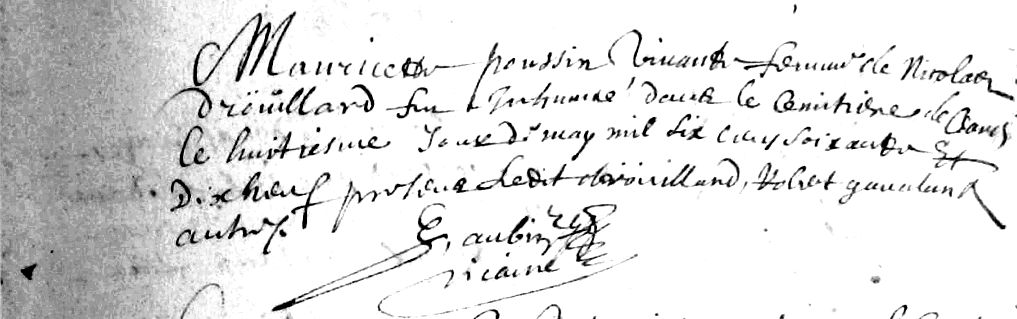 Mauricette poussin vivante femme de Nicolas
Droüillard fut Inhumée dans le Cemitiere de Ceans
le huitiesme Jour de may mil six cens soixante Et
Dix neuf presens Ledit droüillard, Robert gaualand
autres.
G. aubin
vicaire